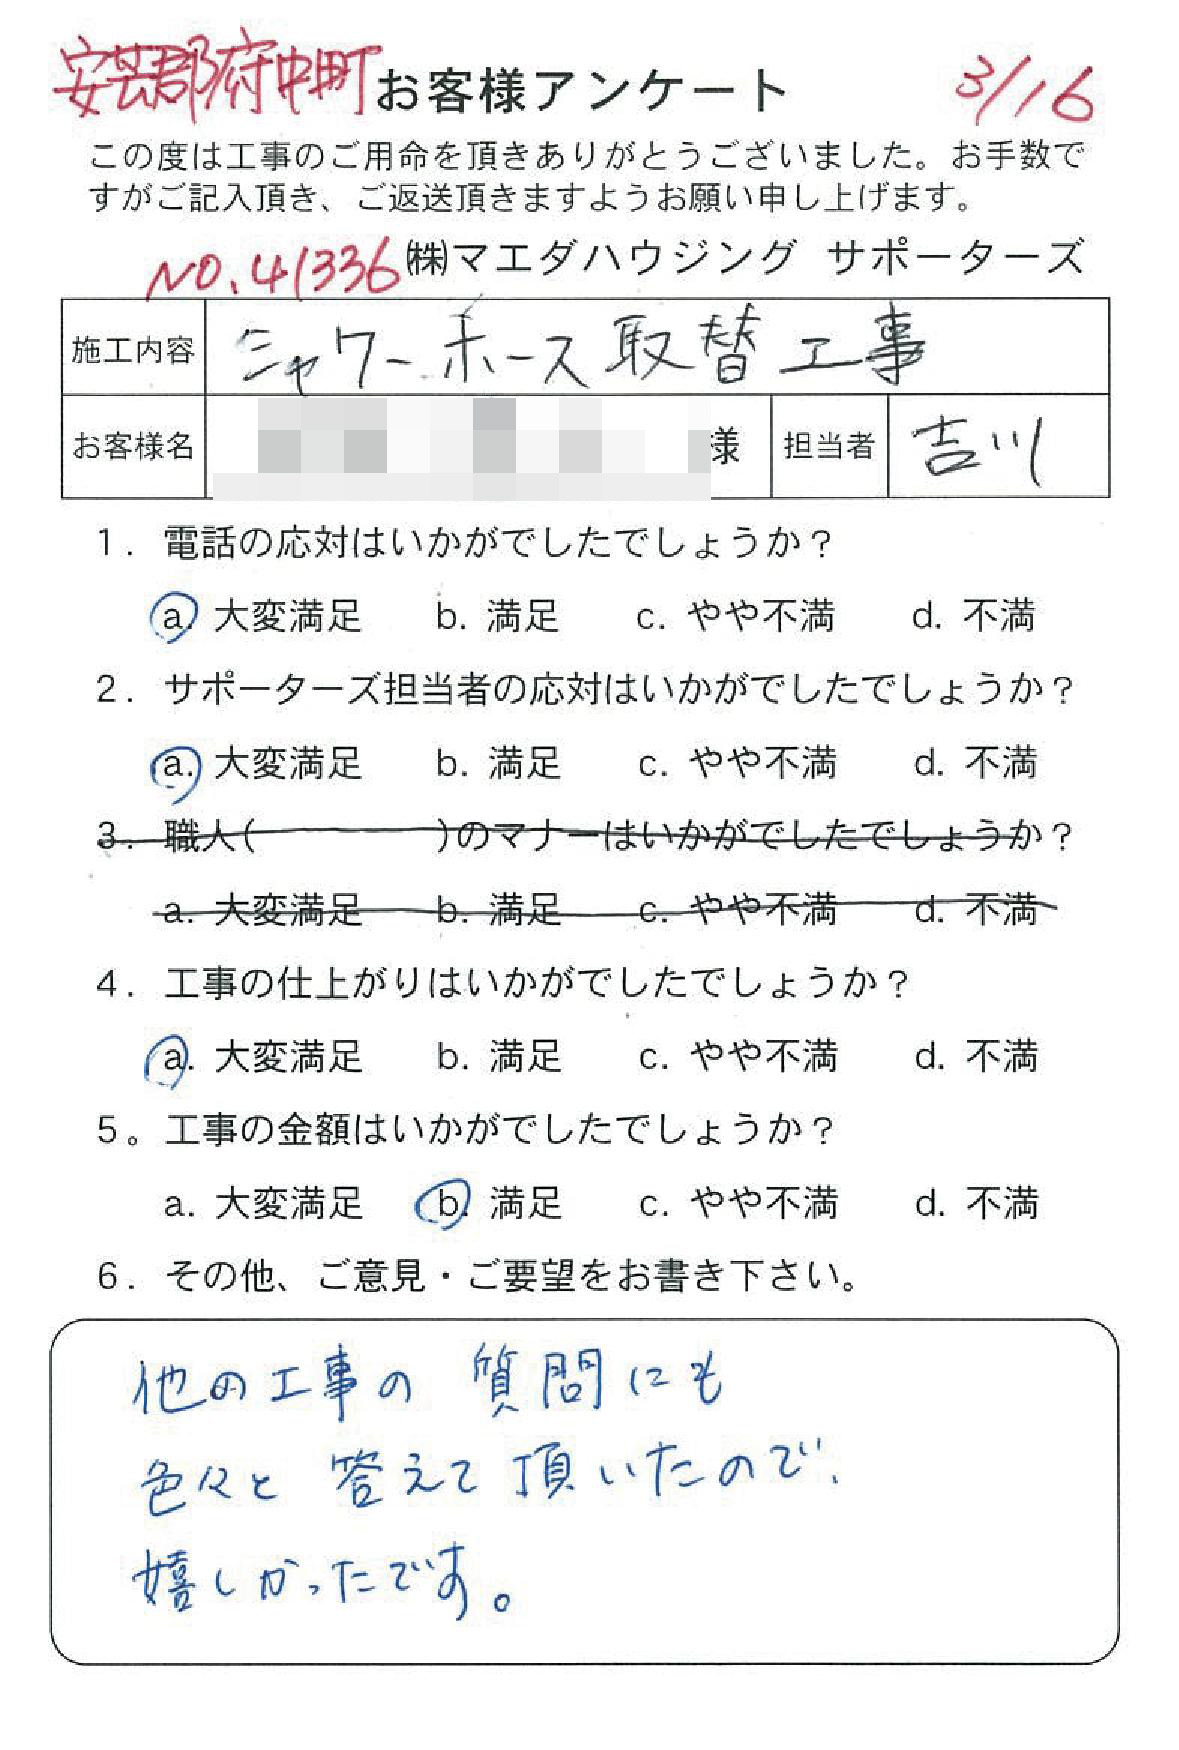 安芸郡府中町 お客様アンケート 3/16
この度は工事のご用命を頂きありがとうございました。お手数で
すがご記入頂き、ご返送頂きますようお願い申し上げます。
NO.41336 ㈱マエダハウジング サポーターズ
施工内容 シャワーホース取替工事
お客様名 様 担当者 吉川
1. 電話の応対はいかがでしたでしょうか？
a. 大変満足 b. 満足 c. やや不満 d. 不満
2. サポーターズ担当者の応対はいかがでしたでしょうか？
a. 大変満足 b. 満足 c. やや不満 d. 不満
3. 職人( )のマナーはいかがでしたでしょうか？
a. 大変満足 b. 満足 c. やや不満 d. 不満
4. 工事の仕上がりはいかがでしたでしょうか？
a. 大変満足 b. 満足 c. やや不満 d. 不満
5。工事の金額はいかがでしたでしょうか？
a. 大変満足 b. 満足 c. やや不満 d. 不満
6. その他、ご意見・ご要望をお書き下さい。
他の工事の 質問にも
色々と 答えて頂いたので、
嬉しかったです。